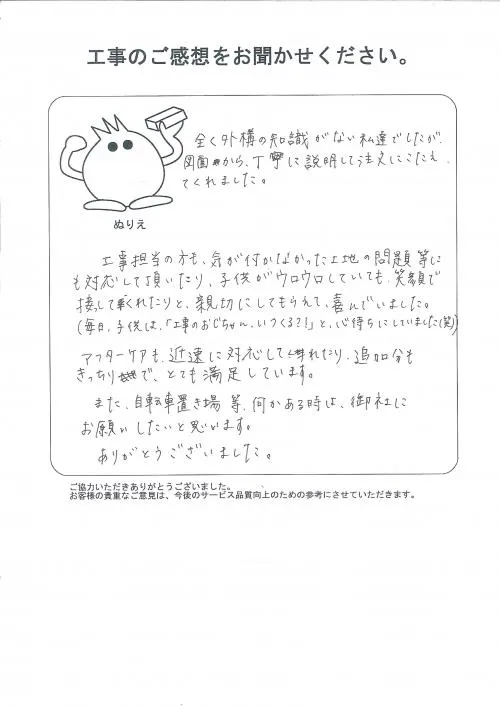 工事のご感想をお聞かせください。
全く外構の知識がない私達でしたが、
図面から、丁寧に説明して注文にこたえ
てくれました。
ぬりえ
工事担当の方も、気が付かなかった土地の問題等に
も対応して頂いたり、子供がウロウロしていても、笑顔で
接してくれたりと、親切にしてもらえて、喜んでいました。
(毎日、子供は、「工事のおじちゃん、いつくる?!」と、心待ちにしていました(笑))
アフターケアも、迅速に対応してくれたり、追加分も
きっちりで、とても満足しています。
また、自転車置き場等、何かある時は、御社に
お願いしたいと思います。
ありがとうございました。
ご協力いただきありがとうございました。
お客様の貴重なご意見は、今後のサービス品質向上のための参考にさせていただきます。